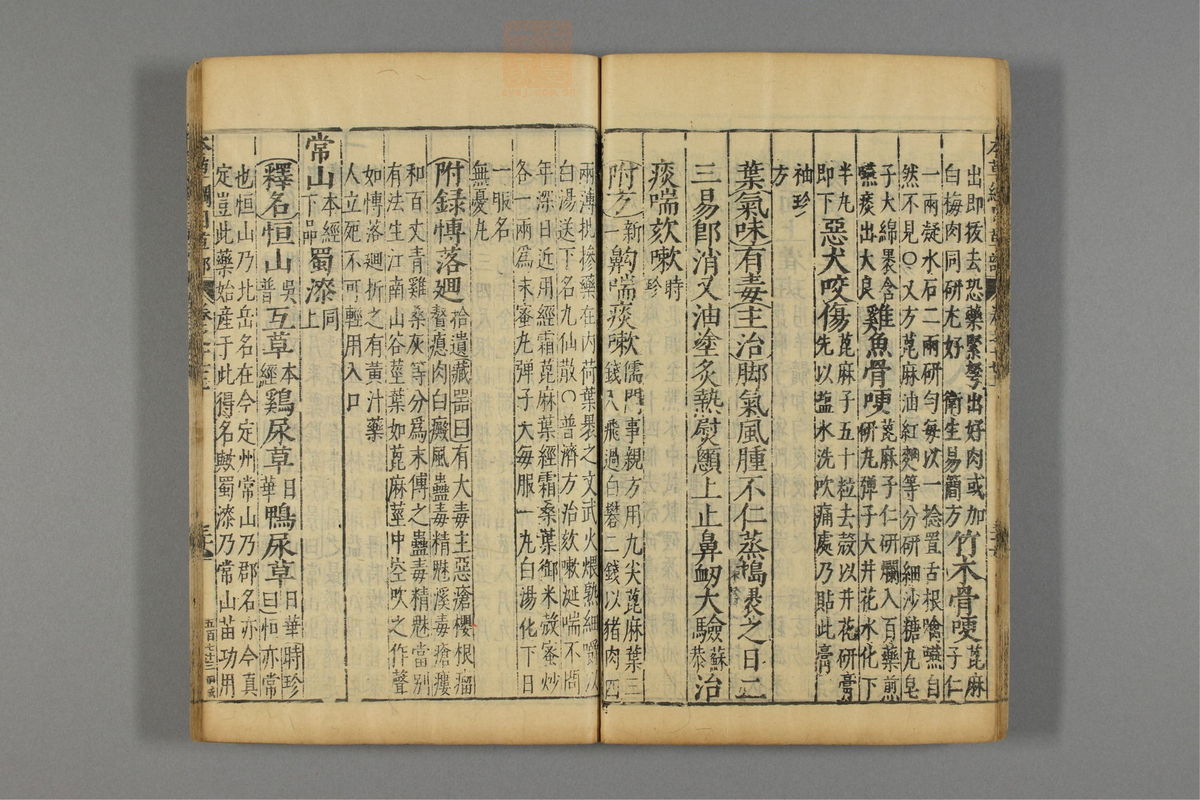 出即拔去恐藥緊弩出好肉或加
白梅肉同研尤好 衛生易簡方 竹木骨哽 蓖麻子仁
一兩凝水石二兩研勻每以一捻置舌根噙嚥自
然不見〇又方蓖麻油紅麴等分研細沙糖丸皂
子大綿裹含嚥痰出大良 雞魚骨哽 蓖麻子仁研爛入百藥煎
研丸彈子大井花水化下
半丸即下 惡犬咬傷 蓖麻子五十粒去殼以井花研膏
先以鹽水洗吹痛處乃貼此膏
袖珍方
葉氣味有毒主治脚氣風腫不仁蒸搗裹之日二
三易卽消又油塗炙熱熨顖上止鼻衂大驗蘇恭治
痰喘欬嗽時珍
附方新一齁喘痰嗽儒門事親方用九尖蓖麻葉三
錢入飛過白礬二錢以猪肉四
兩薄批摻藥在内荷葉裹之文武火煨熟細嚼以
白湯送下名九仙散〇普濟方治欬嗽涎喘不問
年深日近用經霜蓖麻葉經霜桑葉御米殼蜜炒
各一兩爲末蜜丸彈子大每服一丸白湯化下日
一服名
無憂丸
附録慱落迴拾遺藏器曰有大毒主惡瘡癭根瘤
贅瘜肉白癜風蠱毒精魅溪毒瘡瘻
和百丈青雞桑灰等分爲末傅之蠱毒精魅當别
有法生江南山谷莖葉如蓖麻莖中空吹之作聲
如慱落迴折之有黃汁藥
人立死不可輕用入口
常山本經下品蜀漆同上
釋名恒山吳普互草本經鷄屎草日華鴨屎草日華時珍
曰恒亦常
也恒山乃北岳名在今定州常山乃郡名亦今真
定豈此藥始産于此得名歟蜀漆乃常山苗功用